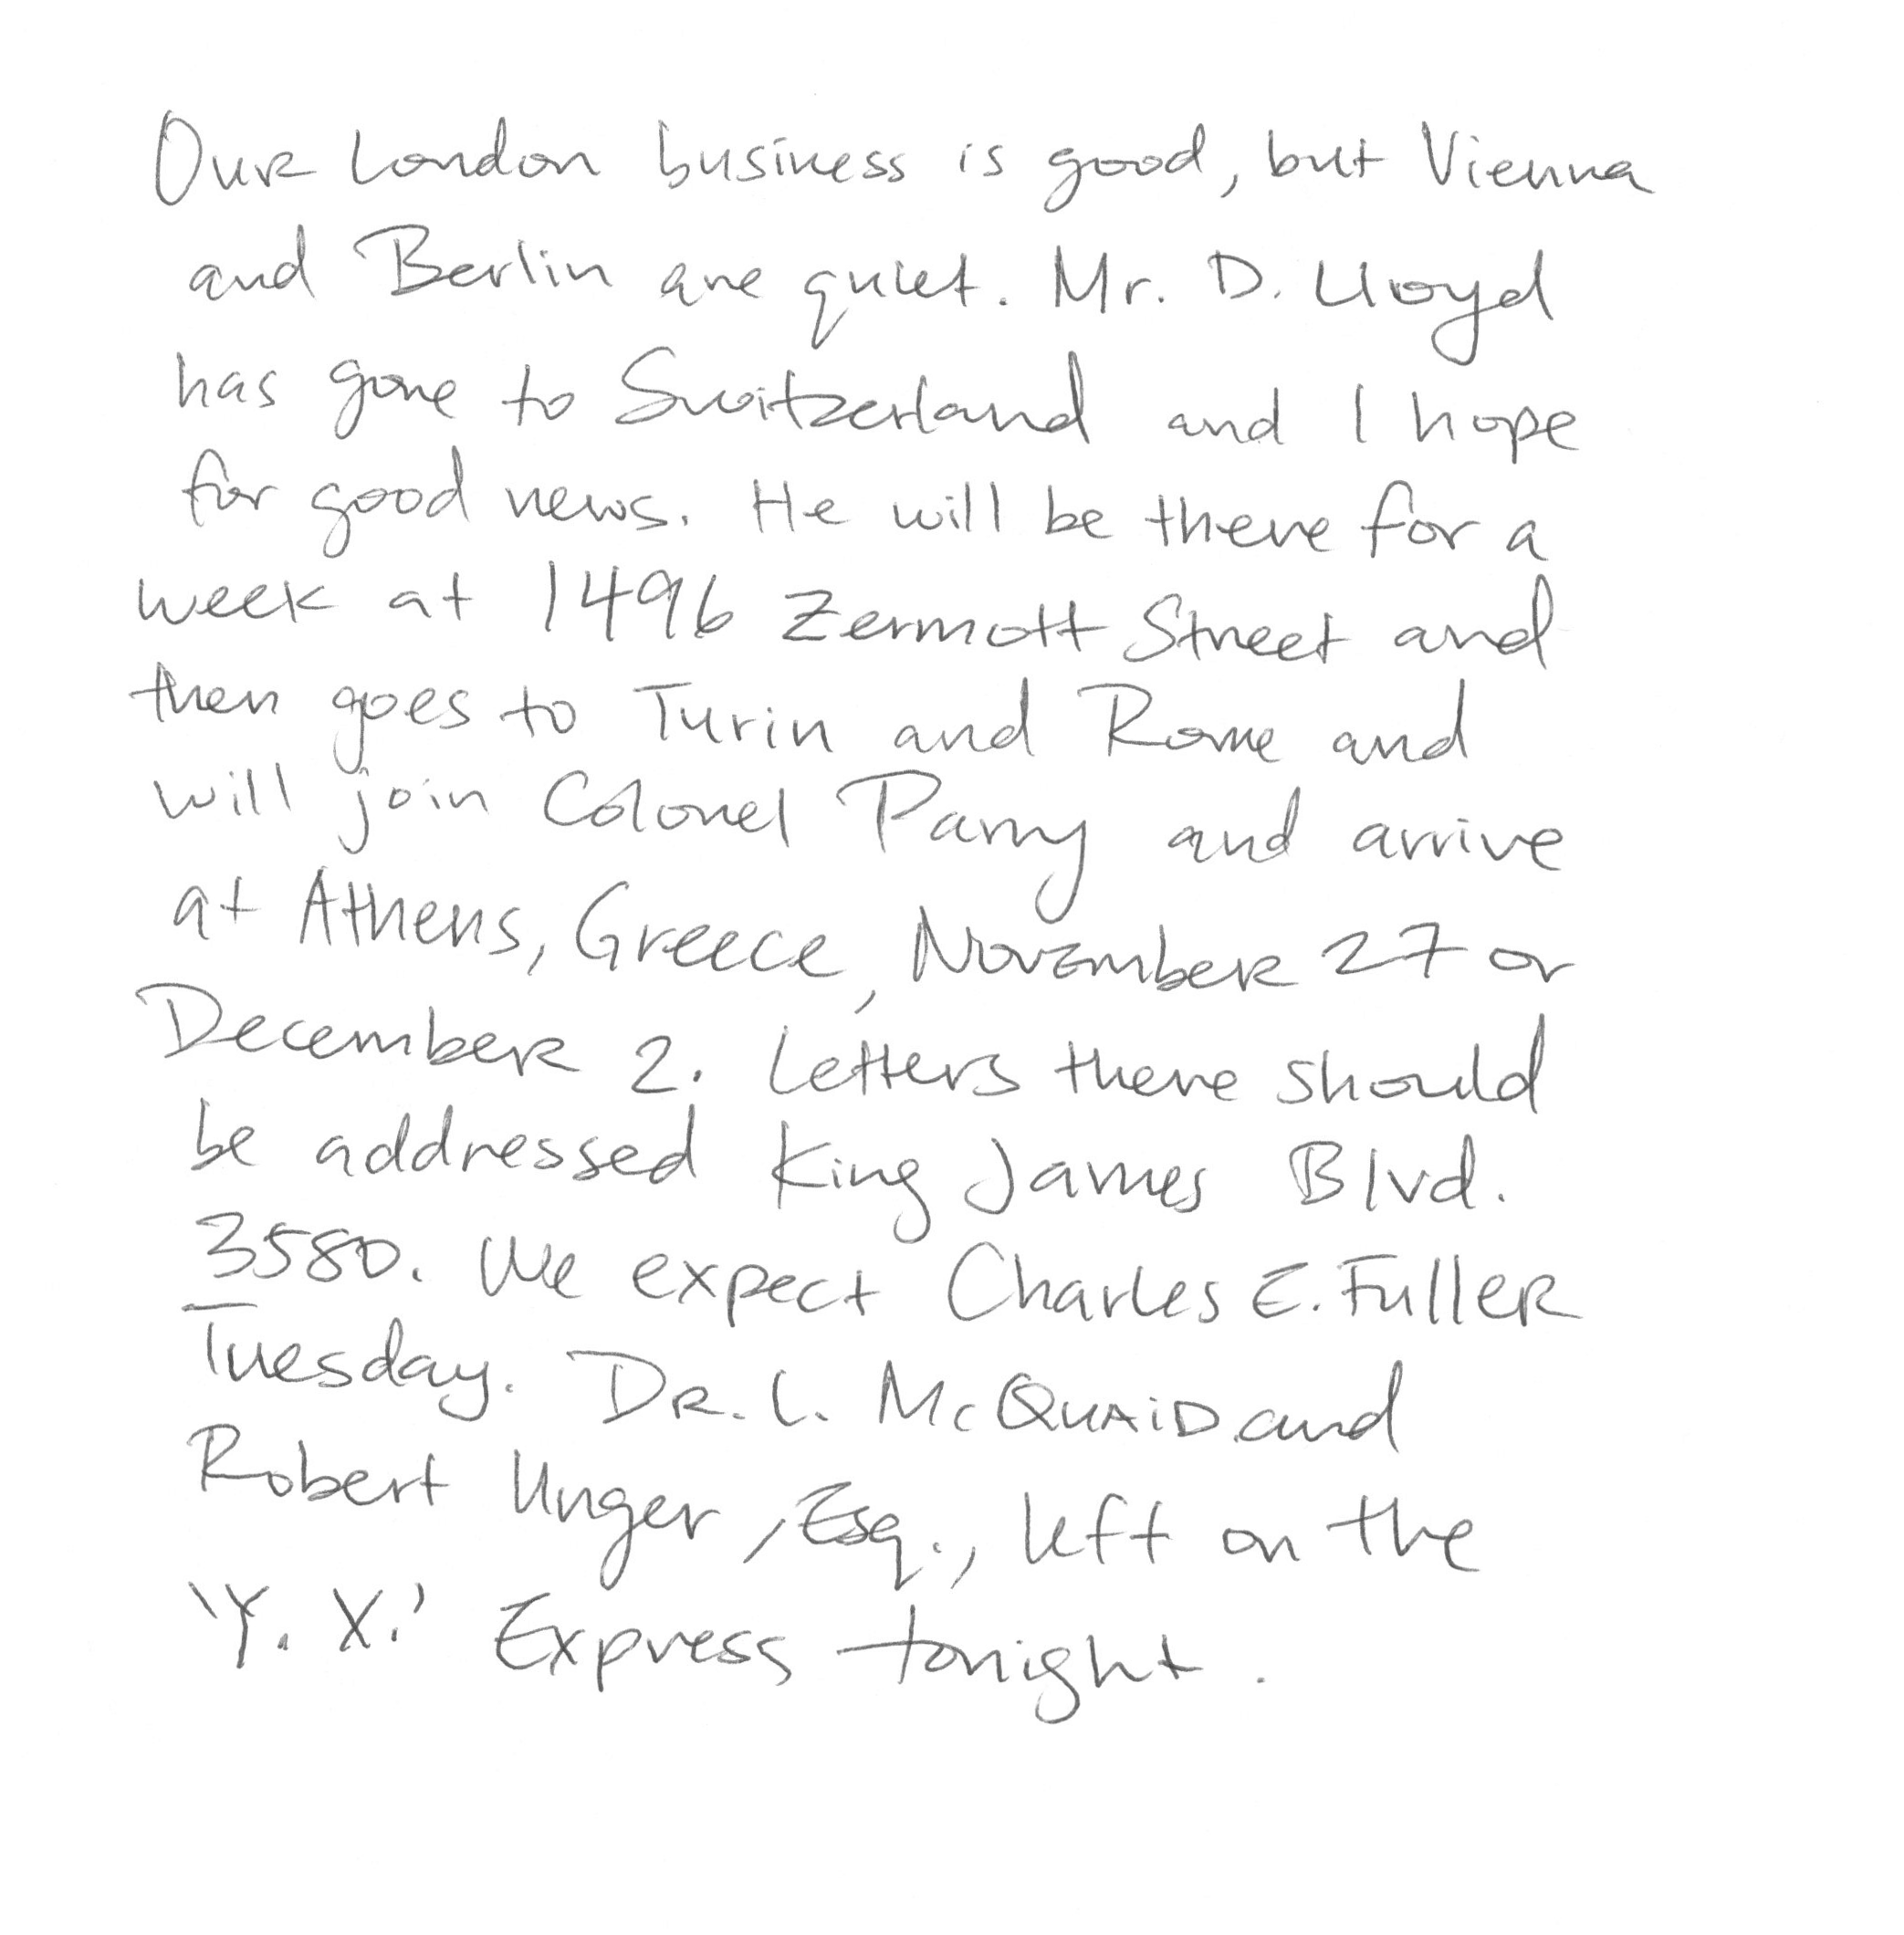 Our London business is good, but Vienna
and Berlin are quiet. Mr. D. Lloyd
has gone to Switzerland and I hope
for good news. He will be there for a
week at 1496 Zermott Street and
then goes to Turin and Rome and
will join Colonel Parry and arrive
at Athens, Greece, November 27 or
December 2. Letters there should
be addressed King James Blvd.
3580. We expect Charles E. Fuller
Tuesday. Dr. L. McQuaid and
Robert Unger, Esq., left on the
'Y. X.' Express tonight.